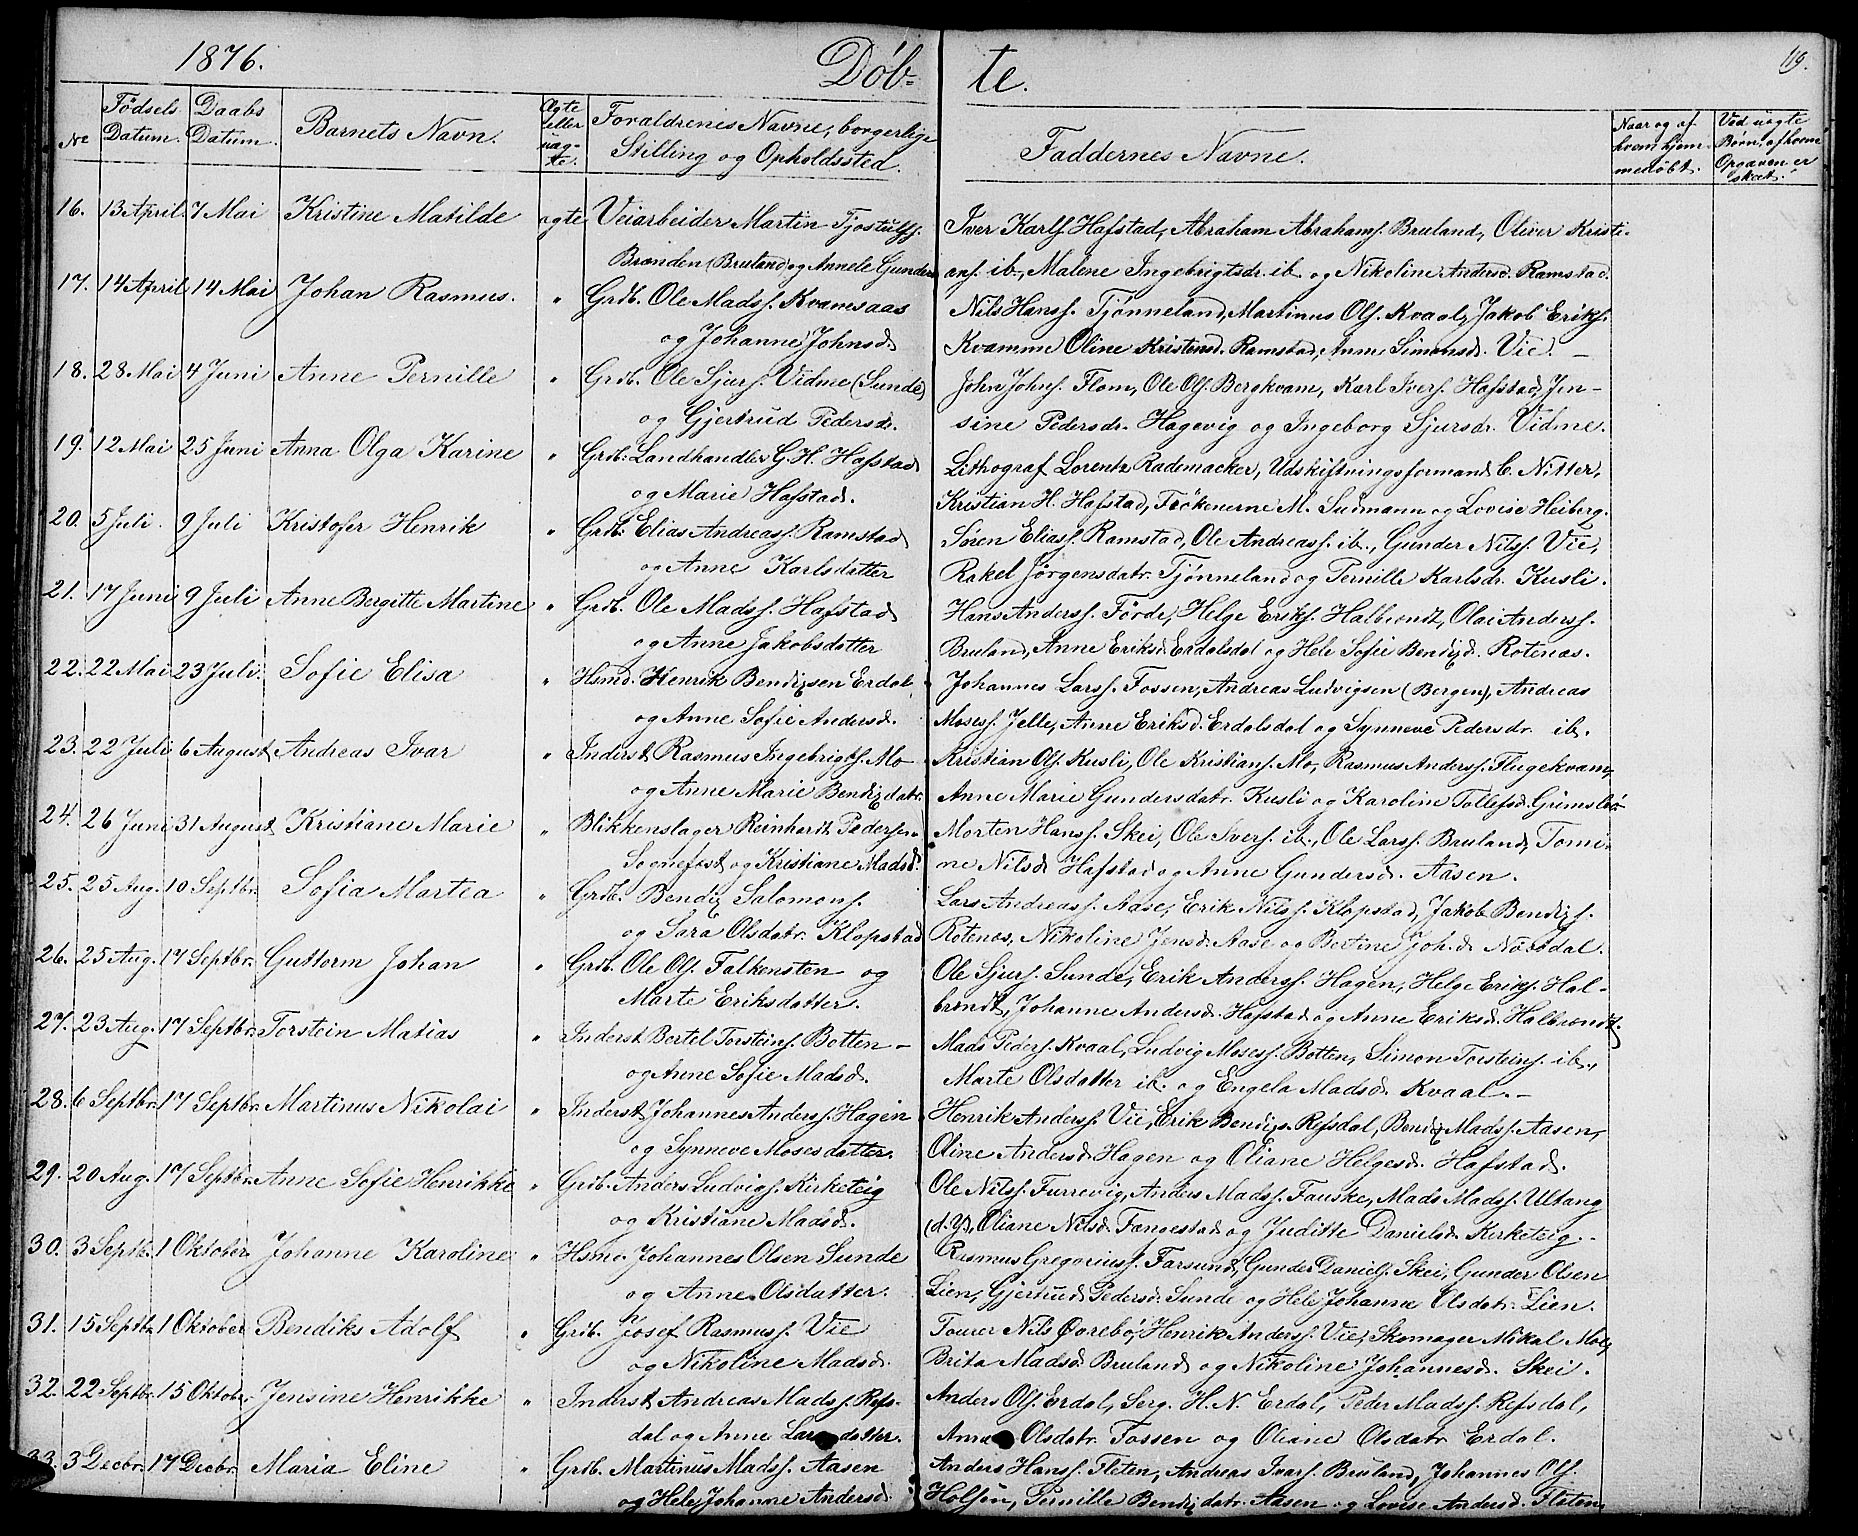 1876. Döb- te. 119.
No Födsels Datum. Daabs Datum. Barnets Navn. Ægte eller uæg-te. Foraldrenes Navne, borgerlige Stilling og Opholdssted. Faddernes Navne. Naar og af hvem hjemmedöbt. Ved uægte Børn, af hvem Opgaven er skeet.
16. 13 April 7 Mai Kristine Matilde ægte Veiarbeider Martin Tjostulfs. Iver Karls. Hafstad, Abraham Abrahams. Bruland, Oliver Kristi-
Brænden (Bruland) og Annele Gundersd. ans. ib., Malene Ingebrigtsdr. ib. og Nikoline Andersd. Ramstad.
17. 14 April 14 Mai Johan Rasmus. " Grdb. Ole Madss. Kvamsaas Nils Hanss. Tjønneland, Martinus Ols. Kvaal, Jakob Eriks.
og Johanne Johnsd. Kvamme Oline Kristensd. Ramstad, Anne Simonsd. Vie. –
18. 28 Mai 4 Juni Anne Pernille " Grdb. Ole Sjurs. Vidme (Sunde) John Johns. Flom, Ole Ols. Bergkvam, Karl Ivers. Hafstad, Jen-
og Gjertrud Pedersdr. sine Pedersdr. Hagevig og Ingeborg Sjursdr. Vidme.
19. 12 Mai 25 Juni Anna Olga Karine " Grdb. Landhandler G. H. Hafstad Lithograf Lorentz Rademacker, Udskiftningsformand C. Nitter,
og Marie Hafstad. Kristian H. Hafstad, Frökenerne M. Sudmann og Lovise Heiberg.
20. 5 Juli. 9 Juli Kristofer Henrik " Grdb. Elias Andreass. Ramstad Søren Eliass. Ramstad, Ole Andreass. ib., Gunder Nilss. Vie,
og Anne Karlsdatter Rakel Jörgensdatr. Tjønneland og Pernille Karlsdr. Kusli.
21. 17 Juni 9 Juli Anne Bergitte Martine " Grdb. Ole Madss. Hafstad Hans Anderss. Förde, Helge Eriks. Halbrendt, Olai Anderss.
og Anne Jakobsdatter Bruland, Anne Eriksd. Erdalsdal og Hele Sofie Bendixd. Rotenæs.
22. 22 Mai 23 Juli. Sofie Elisa " Hsmd. Henrik Bendixsen Erdal, Johannes Larss. Fossen, Andreas Ludvigsen (Bergen), Andreas
og Anne Sofie Andersd. Mosess. Jelle, Anne Eriksd. Erdalsdal og Synneve Pedersdr. ib.
23. 22 Juli 6 August Andreas Ivar " Inderst Rasmus Ingebrigts. Mo – Kristian Ols. Kusli, Ole Kristians. Mo, Rasmus Anderss. Flugekvam,
og Anne Marie Bendixdatr. Anne Marie Gundersdatr. Kusli og Karoline Tollefsd. Grimsbö.
24. 26 Juni 31 August Kristiane Marie " Blikkenslager Reinhardt Pedersen Morten Hanss. Skei, Ole Ivers. ib., Ole Larss. Bruland, Tomi-
Sognefest og Kristiane Madsd. ne Nilsd. Hafstad og Anne Gundersd. Aasen.
25. 25 Aug. 10 Septbr. Sofia Martea " Grdb. Bendix Salomons. Lars Andreass. Aase, Erik Nilss. Klopstad, Jakob Bendixs.
og Sara Olsdatr. Klopstad Rotenæs, Nikoline Jensd. Aase og Bertine Joh.d. Naustdal.
26. 25 Aug. 17 Septbr. Guttorm Johan " Grdb. Ole Ols. Falkensten og Ole Sjurs. Sunde, Erik Anderss. Hagen, Helge Eriks. Hal-
Marte Eriksdatter. brendt, Johanne Andersd. Hafstad og Anne Eriksd. Halbrendt.
27. 23 Aug. 17 Septbr. Torstein Matias " Inderst Bertel Torsteins. Botten – Mads Peders. Kvaal, Ludvig Mosess. Botten, Simon Torsteins. ib.,
og Anne Sofie Madsd. Marte Olsdatter ib. og Engela Madsd. Kvaal. –
28. 6 Septbr. 17 Septbr. Martinus Nikolai " Inderst Johannes Anderss. Hagen Henrik Anderss. Vie, Erik Bendixs. Refsdal, Bendix Madss. Aasen,
og Synneve Mosesdatter. Oline Andersd. Hagen og Oliane Helgesd. Hafstad.
29. 20 Aug. 17 Septbr. Anne Sofie Henrikke " Grdb. Anders Ludvigs. Kirketeig Ole Nilss. Furrevig, Anders Madss. Fauske, Mads Madss. Ultang
og Kristiane Madsd. (d.Y), Oliane Nilsd. Fængestad og Juditte Danielsd. Kirketeig. –
30. 3 Septb. 1 Oktober Johanne Karoline " Hsm. Johannes Olsen Sunde Rasmus Gregoriuss. Farsund, Gunder Daniels. Skei, Gunder Olsen
og Anne Olsdatter. Lien, Gjertrud Pedersd. Sunde og Hele Johanne Olsdatr. Lien.
31. 15 Septbr. 1 Oktober Bendiks Adolf " Grdb. Josef Rasmuss. Vie Tourer Nils Øvrebö, Henrik Anderss. Vie, Skomager Mikal Moe,
og Nikoline Madsd. Brita Madsd. Bruland og Nikoline Johannesd. Skei.
32. 22 Septbr. 15 Oktobr. Jensine Henrikke " Inderst Andreas Madss. Refs- Anders Ols. Erdal, Serg. H. N. Erdal, Peder Madss. Refsdal,
dal og Anne Larsdatter. Anna Olsdatr. Fossen og Oliane Olsdatr. Erdal.
33. 3 Decbr. 17 Decbr. Maria Eline " Grdb. Martinus Madss. Aasen Anders Hanss. Fleten, Andreas Ivars. Bruland, Johannes Ols.
og Hele Johanne Andersd. Holsen, Pernille Bendixdatr. Aasen og Lovise Andersd. Fleten.